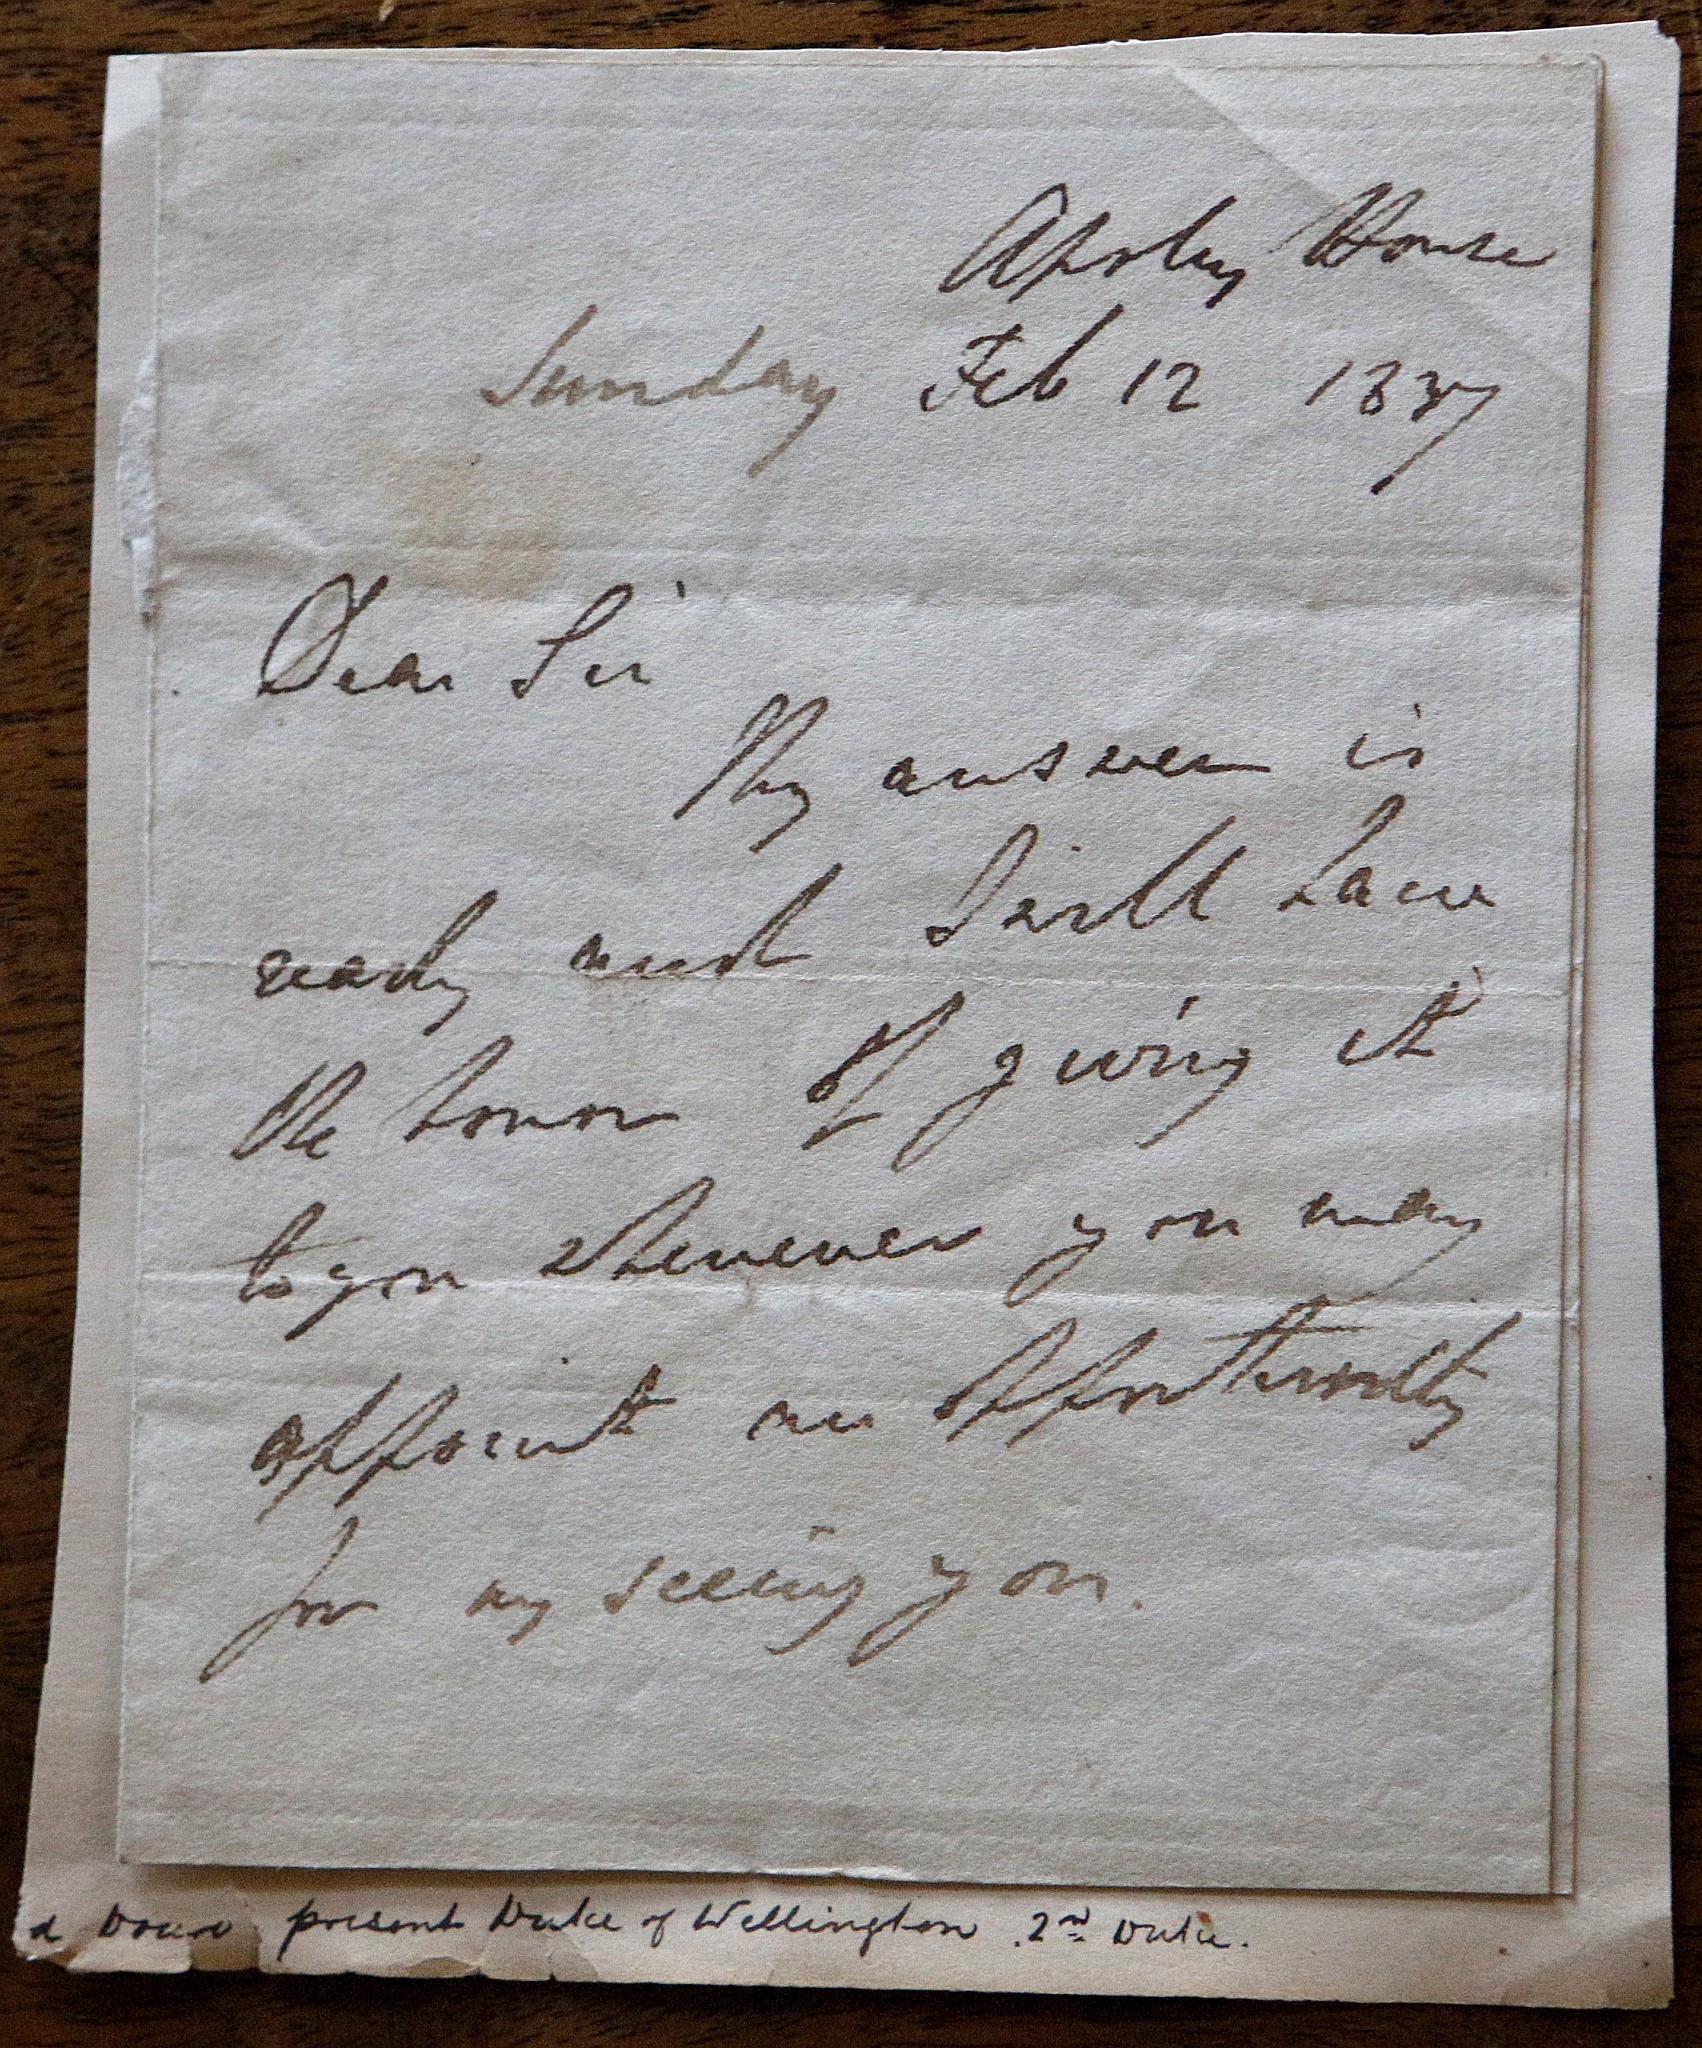 Apsley House
Sunday Feb 12 1837
Dear Sir
My answer is
ready and I will have
the honor of giving it
to you whenever you may
appoint an opportunity
for my seeing you.
d Douro present Duke of Wellington. 2nd Duke.